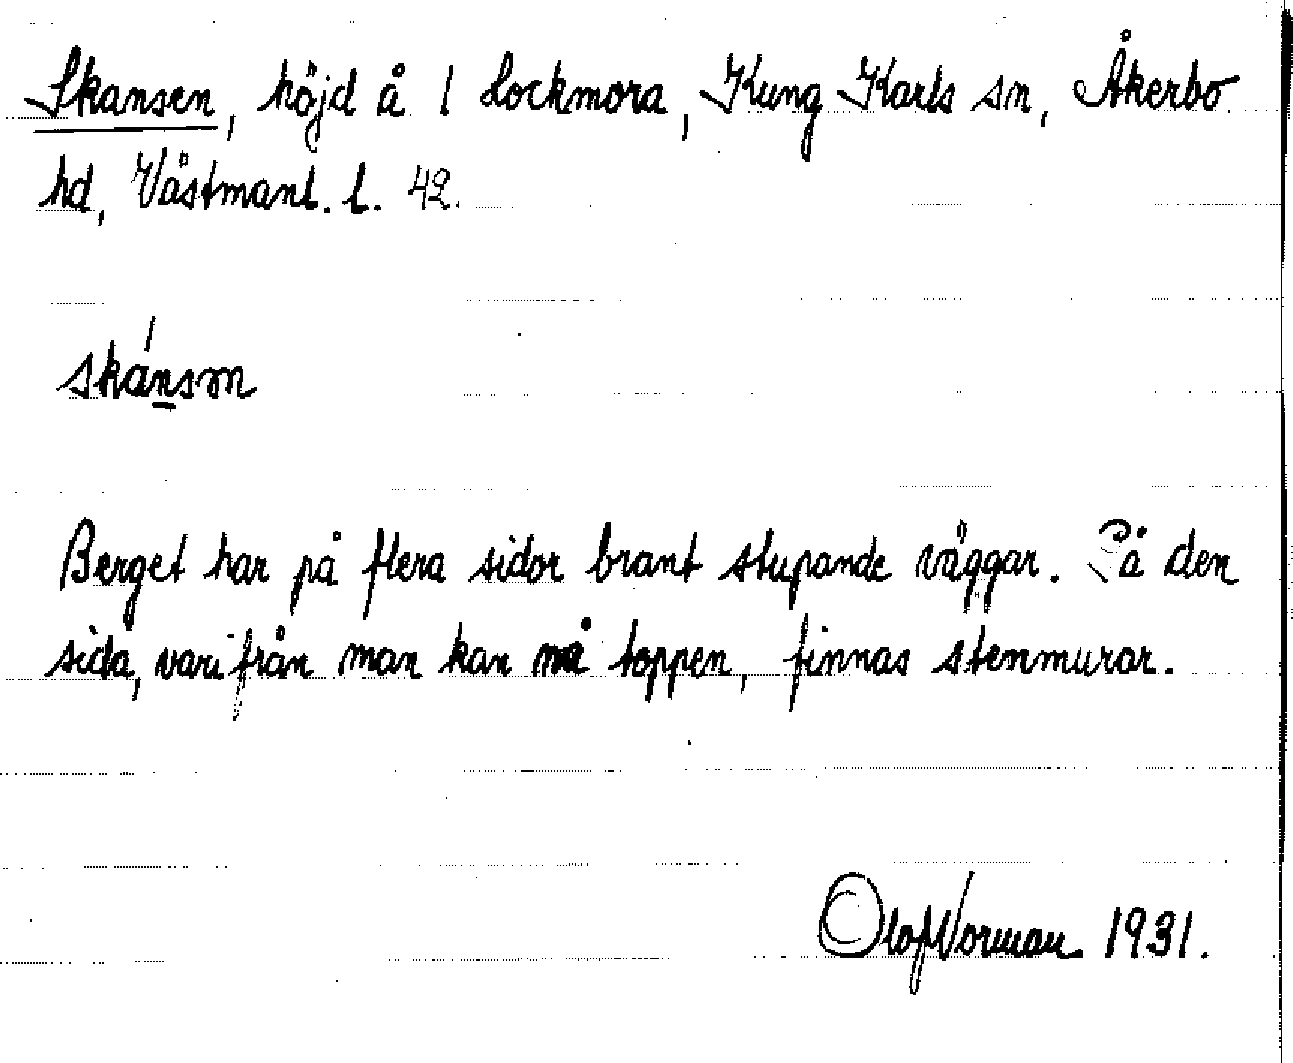 Skansen, höjd å 1 Lockmora, Kung Karls sn, Åkerbo
hd, Västmanl. l. 42.
skánsm
Berget har på flera sidor brant stupande väggar. På den
sida, varifrån man kan nå toppen, finnas stenmurar.
Olof Norman 1931.